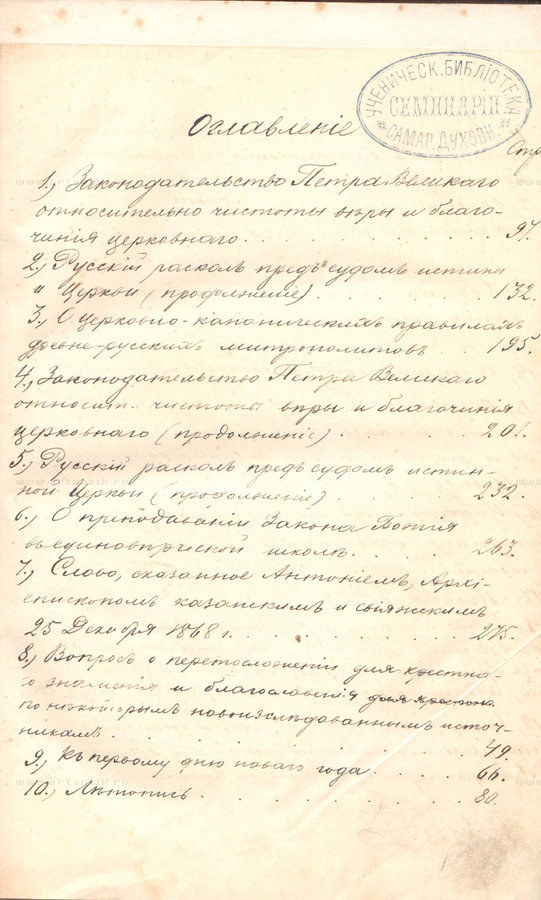 УЧЕНИЧЕСК. БИБЛІОТЕКА
СЕМИНАРІИ
САМАР. ДУХОВН.
Оглавленіе
Стр
1., Законодательство Петра Великаго
относительно чистоты вѣры и благо-
чинія церковнаго. . . . . . . . 97.
2., Русскій расколъ предъ судомъ истины
и Церкви (продолженіе) . . . . . 132.
3., О церковно-каноническихъ правилахъ
древне-русскихъ митрополитовъ . 195.
4., Законодательство Петра Великаго
относит. чистоты вѣры и благочинія
церковнаго (продолженіе) . . . . 201.
5., Русскій расколъ предъ судомъ истин-
ной Церкви (продолженіе) . . . . 232.
6., О преподаваніи Закона Божія
въ единовѣрческой школѣ. . . . . 263.
7., Слово, сказанное Антоніемъ, Архі-
епископомъ казанскимъ и свіяжскимъ
25 Декабря 1868 г. . . . . . . . 275.
8., Вопросъ о перстосложеніи для крестна-
го знаменія и благословенія для крестна
по нѣкоторымъ новоизслѣдованнымъ источ-
никамъ. . . . . . . . . 49.
9., Къ первому дню новаго года. . . . 66.
10., Лѣтопись . . . . . . . . 80.